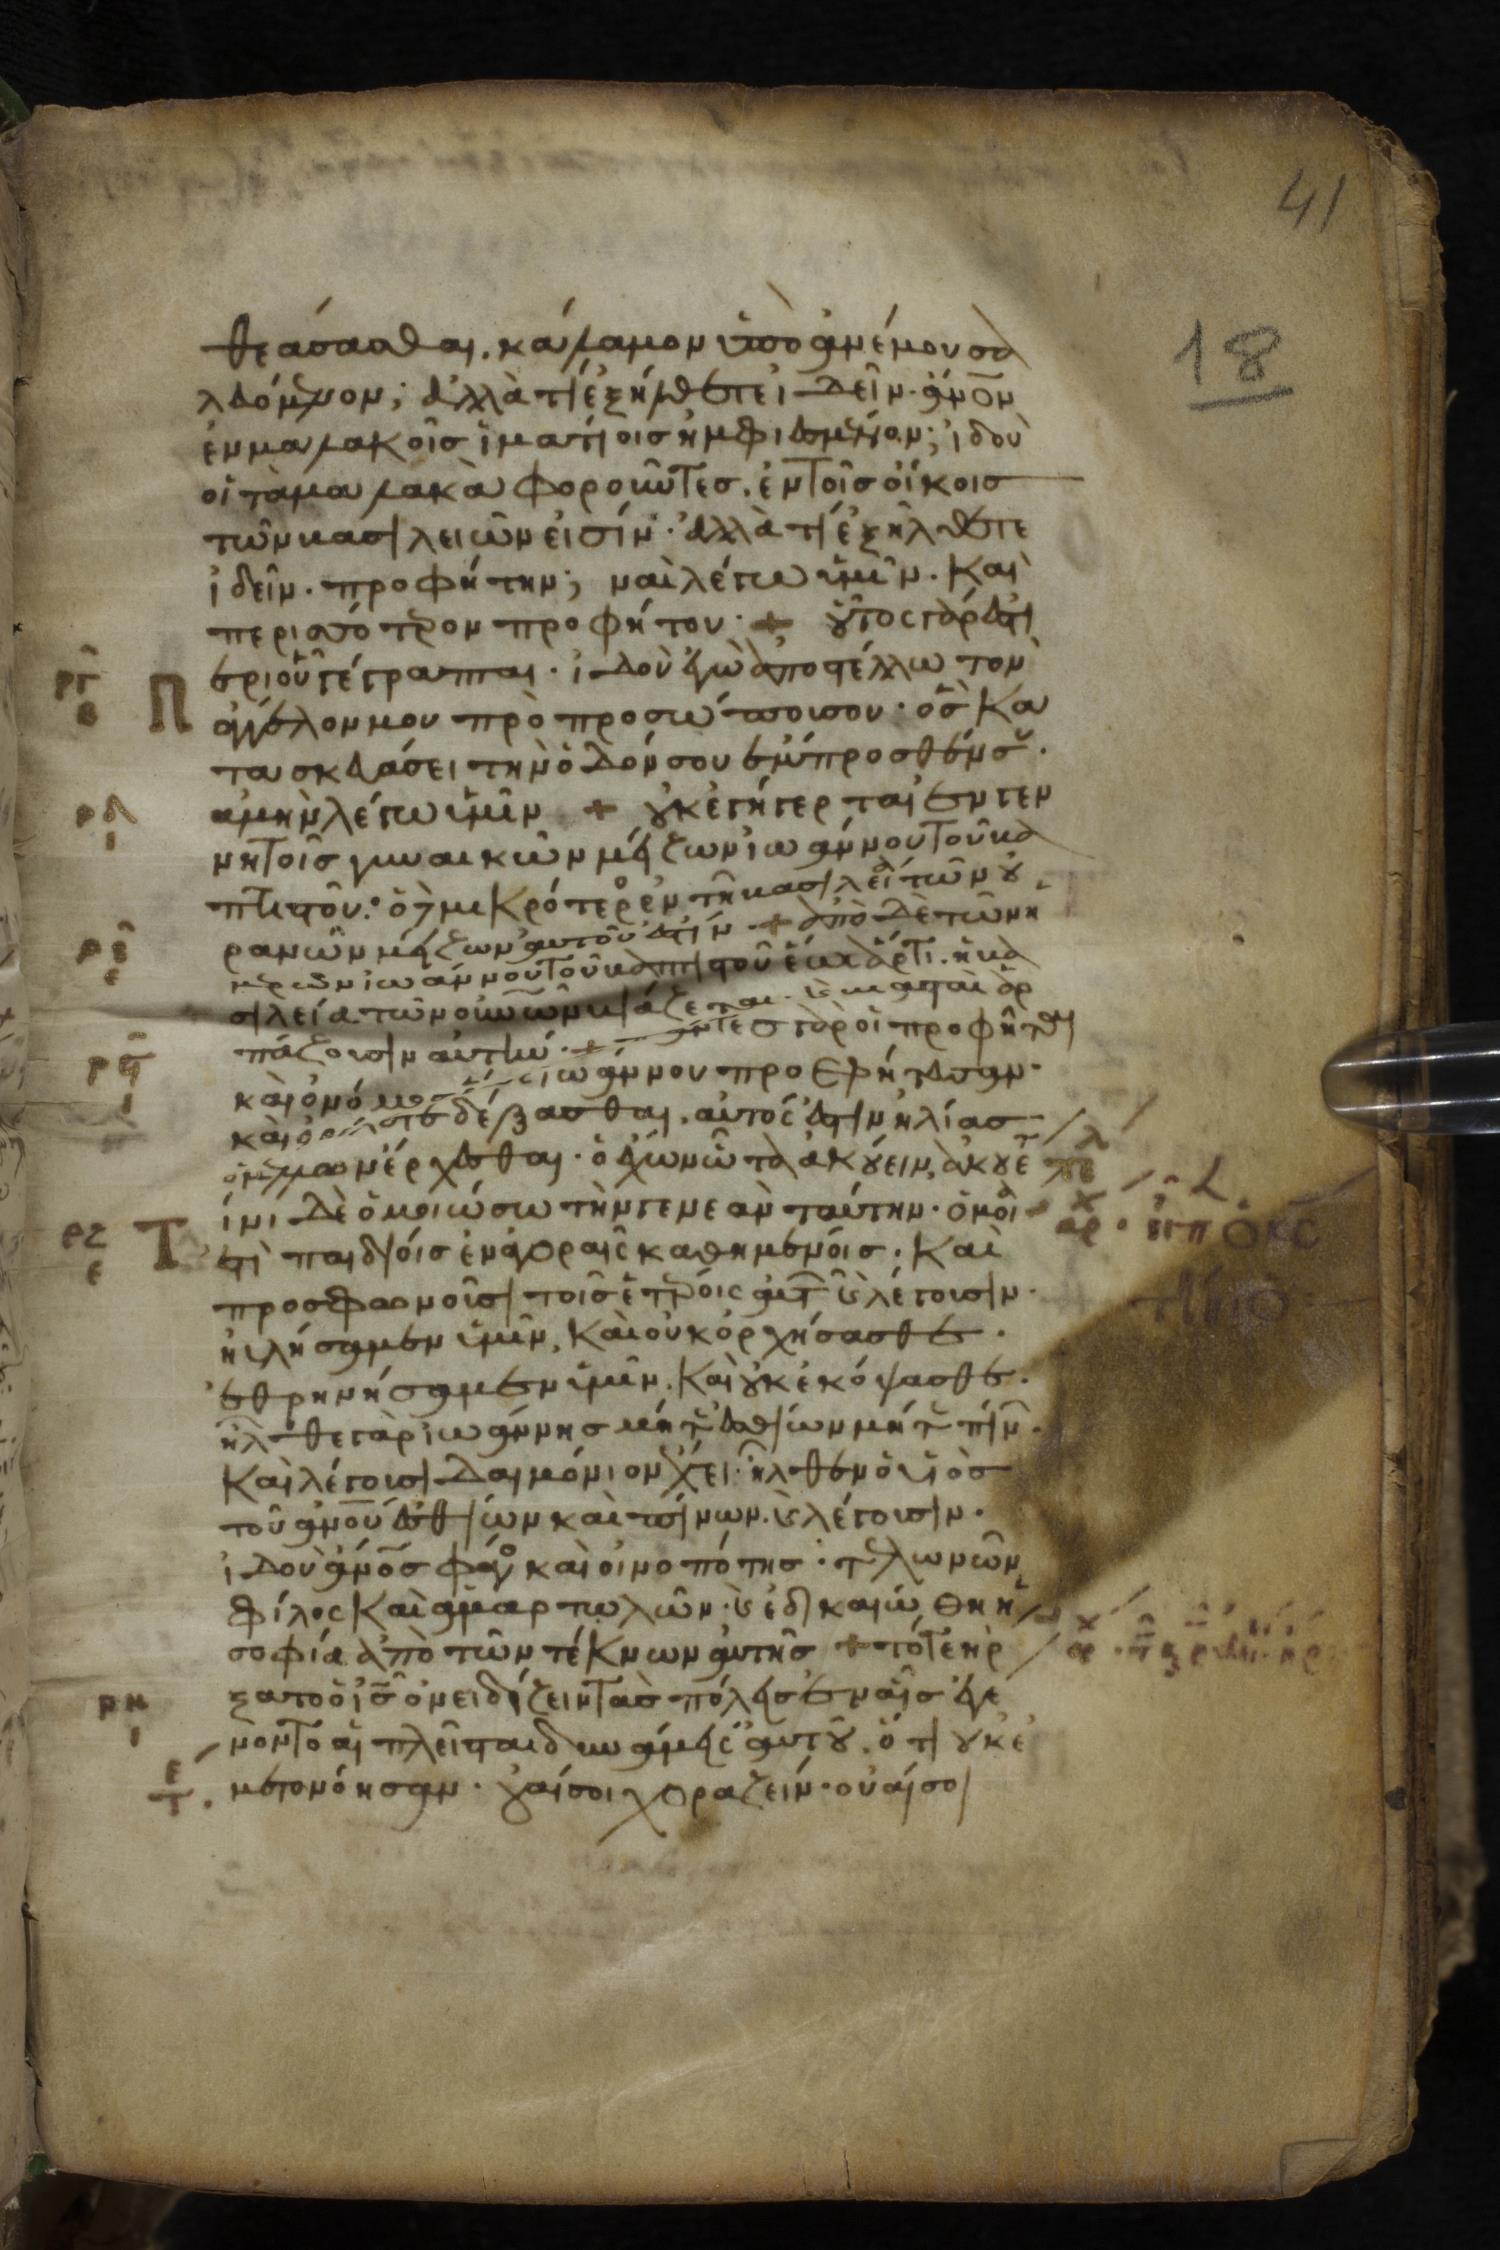 41
18
θεάσασθαι. κάλαμον ὑπὸ ἀνέμου σα
λευόμενον; ἀλλὰ τί ἐξήλθετε ἰδεῖν. ἄνον
ἐν μαλακοῖς ἱματίοις ἠμφιεσμένον; ἰδοὺ
οἱ τὰ μαλακὰ φοροῦντες. ἐν τοῖς οἴκοις
τῶν βασιλειῶν εἰσίν. ἀλλὰ τί ἐξήλθετε
ἰδεῖν. προφήτην; ναὶ λέγω ὑμῖν. καὶ
περισσότερον προφήτου. + οὗτος γάρ ἐστι
ργ β περὶ οὗ γέγραπται. ἰδοὺ ἐγὼ ἀποστέλλω τὸν
ἄγγελόν μου πρὸ προσώπου σου. ὃς κα
τασκευάσει τὴν ὁδόν σου ἔμπροσθέν σου.
ρδ ἀμὴν λέγω ὑμῖν + οὐκ ἐγήγερται ἐν γεν
νητοῖς γυναικῶν μείζων ἰωάννου τοῦ βα
πτιστοῦ. ὁ δὲ μικρότερος ἐν τῇ βασιλείᾳ τῶν οὐ
ρε ρανῶν μείζων αὐτοῦ ἐστίν + ἀπὸ δὲ τῶν ἡ
μερῶν ἰωάννου τοῦ βαπτιστοῦ ἕως ἄρτι. ἡ βα
σιλεία τῶν οὐνῶν βιάζεται. καὶ βιασταὶ ἁρ
πάζουσιν αὐτήν. + πάντες γὰρ οἱ προφῆται
καὶ ὁ νόμος ἕως ἰωάννου προεφήτευσαν.
καὶ εἰ θέλετε δέξασθαι. αὐτός ἐστιν ἠλίας
ὁ μέλλων ἔρχεσθαι. ὁ ἔχων ὦτα ἀκούειν, ἀκουέτω
ρζ ε Τίνι δὲ ὁμοιώσω τὴν γενεὰν ταύτην. ὁμοία
ἐστὶ παιδίοις ἐν ἀγοραῖς καθημένοις. καὶ
προσφωνοῦσι τοῖς ἑτέροις αὐτῶν καὶ λέγουσιν.
ηὐλήσαμεν ὑμῖν, καὶ οὐκ ὠρχήσασθε.
ἐθρηνήσαμεν ὑμῖν. καὶ οὐκ ἐκόψασθε.
ἦλθε γὰρ ἰωάννης μήτε ἐσθίων μήτε πίνων.
καὶ λέγουσι δαιμόνιον ἔχει. ἦλθεν ὁ υἱὸς
τοῦ ἀνου ἐσθίων καὶ πίνων. καὶ λέγουσιν.
ἰδοὺ ἄνος φάγος καὶ οἰνοπότης. τελωνῶν
φίλος καὶ ἁμαρτωλῶν. καὶ ἐδικαιώθη ἡ
σοφία ἀπὸ τῶν τέκνων αὐτῆς + τότε ἤρ
ρη ξατο ὁ ις ὀνειδίζειν τὰς πόλεις ἐν αἷς ἐγέ
νοντο αἱ πλεῖσται δυνάμεις αὐτοῦ. ὅτι οὐ
μετενόησαν. οὐαί σοι χοραζείν. οὐαί σοι